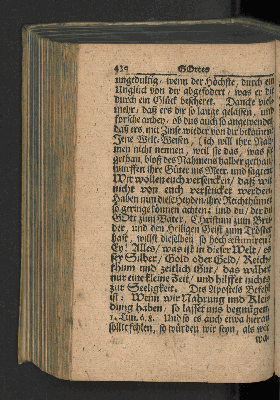 432 GOttes
ungedultig/ wenn der Höchste, durch ein
Unglück von dir abgefodert/ was er dir
durch ein Glück bescheret. Dancke viel-
mehr/ daß ers dir so lange gelassen, und
forsche darbey/ ob dus auch so angewendet
daß ers mit Zinse wieder von dir bekommt
Jene Welt-Weisen, (ich will ihre Nah-
men nicht nennen, weil sie das, was sie
gethan, bloß des Nahmens halber gethan
wurffen ihre Güter ins Meer, und sagten:
Wir wollen euch versencken/ daß wir
nicht von euch versencket werden
Haben nun die Heyden/ ihre Reichthümer
so geringe können achten; und du/ der du
GOtt zum Vater, Christum zum Bru-
der, und den Heiligen Geist zum Tröster
hast, willst dieselben so hoch æstimiren?
Ey! Alles/ was ist in dieser Welt/ es
sey Silber/ Gold oder Geld/ Reich-
thum und zeitlich Gut/ das währt
nur eine kleine Zeit/ und hilfft nichts
zur Seeligkeit. Des Apostels Befehl
ist: Wenn wir Nahrung und Klei-
dung haben/ so lasset uns begnügen
1. Tim. 6, 8. Und so es auch etwa hieran
sollt fehlen, so würden wir seyn, als